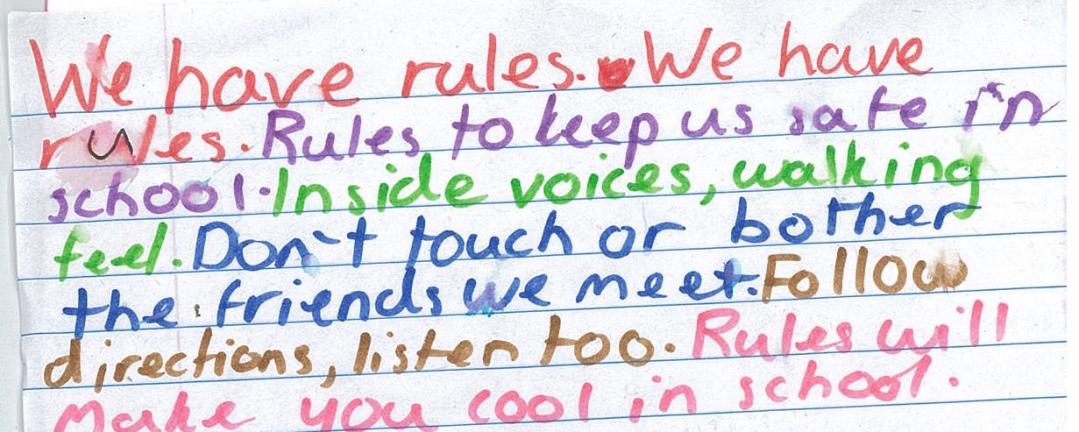 We have rules. We have
rules. Rules to keep us safe in
school. Inside voices, walking
feet. Don't touch or bother
the friends we meet. Follow
directions, listen too. Rules will
make you cool in school.